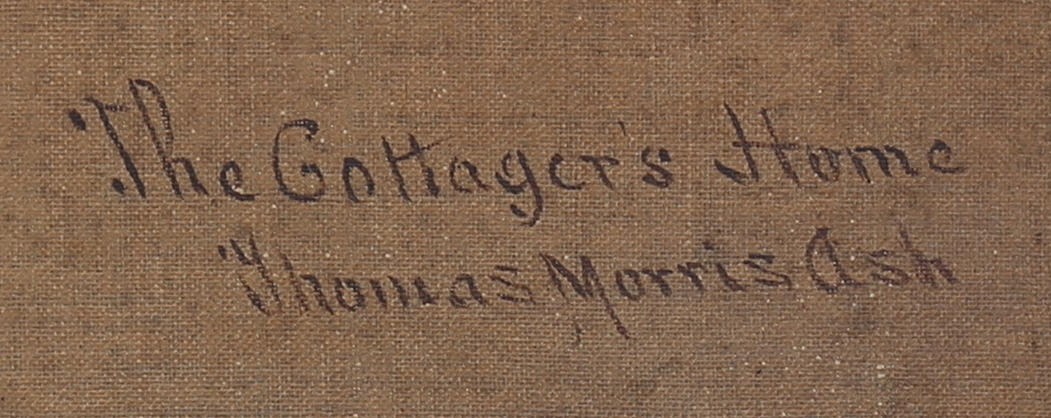 The Cottager's Home
Thomas Morris Ash